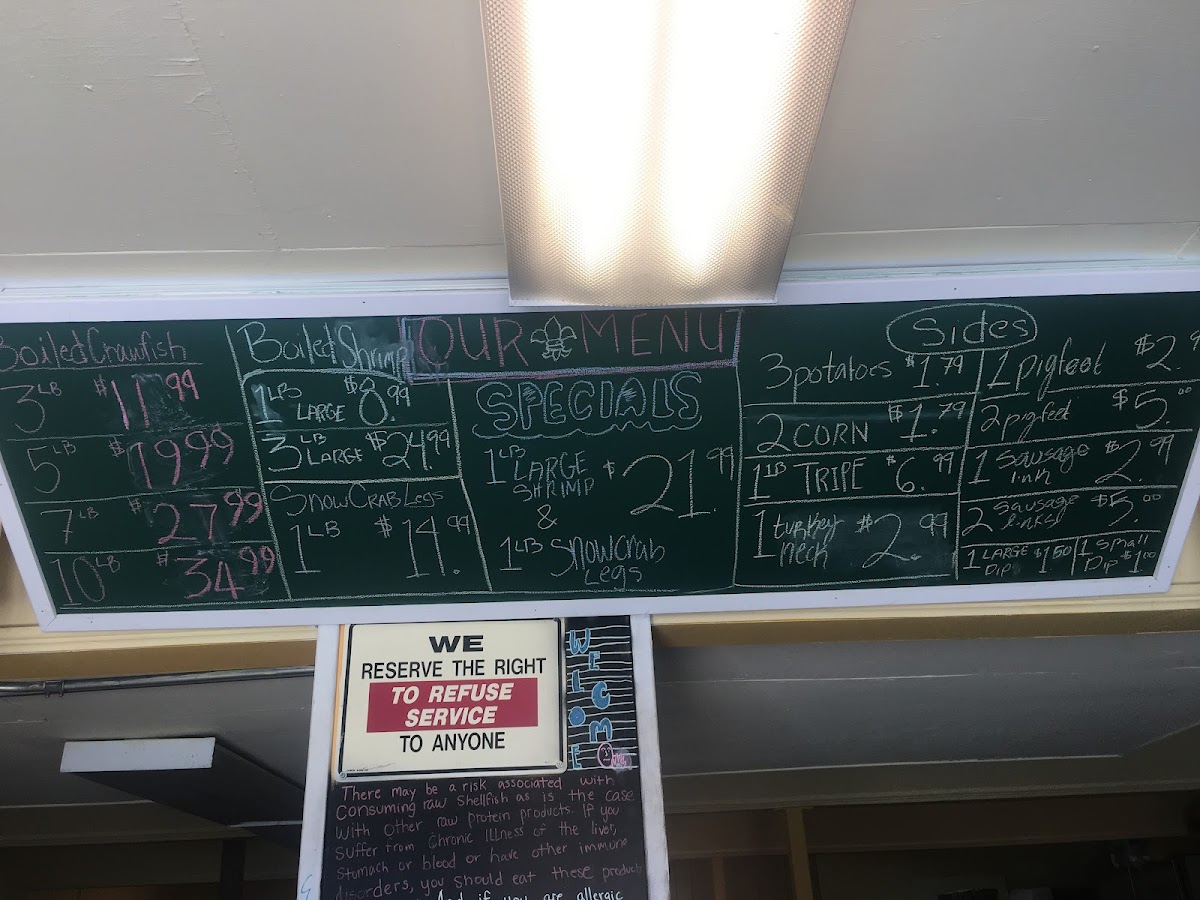 Boiled Crawfish
3 LB $11.99
5 LB $19.99
7 LB $27.99
10 LB $34.99
Boiled Shrimp
1 LB LARGE $8.99
3 LB LARGE $24.99
Snow Crab Legs
1 LB $14.99
OUR MENU
SPECIALS
1 LB LARGE
SHRIMP
&
1 LB Snowcrab
Legs
$21.99
Sides
3 potatoes $1.79
2 CORN $1.79
1 LB TRIPE $6.99
1 turkey
neck $2.99
1 pigfeet $2.
2 pigfeet $5.00
1 Sausage
link $2.99
2 Sausage
links $5.00
1 LARGE
Dip $1.50
1 Small
Dip $1.00
WE
RESERVE THE RIGHT
TO REFUSE
SERVICE
TO ANYONE
WELCOME
There may be a risk associated with
Consuming raw Shellfish as is the case
With other raw protein products. If you
Suffer from Chronic Illness of the liver,
Stomach or blood or have other immune
disorders, you should eat these products
And if you are allergic